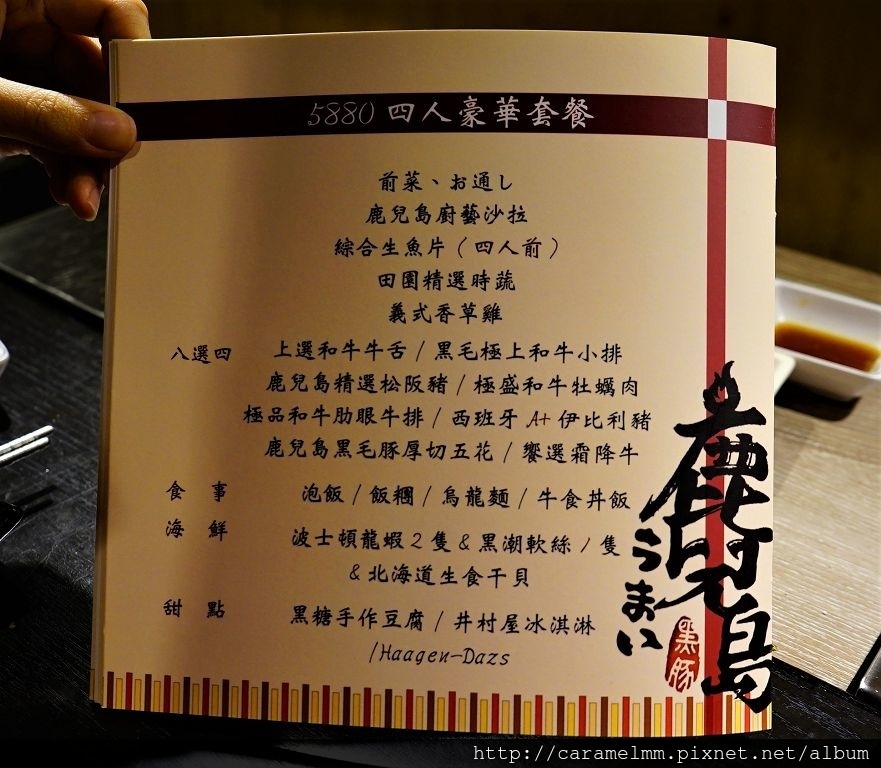 5880 四人豪華套餐
前菜、お通し
鹿兒島廚藝沙拉
綜合生魚片（四人前）
田園精選時蔬
義式香草雞
八選四 上選和牛牛舌 / 黑毛極上和牛小排
鹿兒島精選松阪豬 / 極盛和牛牡蠣肉
極品和牛肋眼牛排 / 西班牙 A+ 伊比利豬
鹿兒島黑毛豚厚切五花 / 饗選霜降牛
食事 泡飯 / 飯糰 / 烏龍麵 / 牛食丼飯
海鮮 波士頓龍蝦2隻 & 黑潮軟絲1隻
& 北海道生食干貝
甜點 黑糖手作豆腐 / 井村屋冰淇淋
/Haagen-Dazs
鹿兒島
うまい
黑豚
http://caramelmm.pixnet.net/album